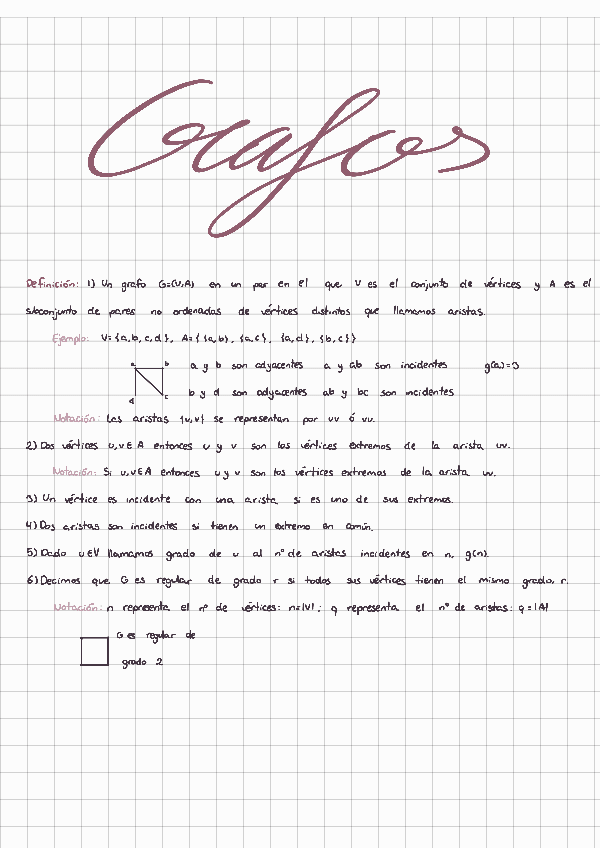 Grafos
Definición: 1) Un grafo G=(V,A) en un par en el que V es el conjunto de vértices y A es el
subconjunto de pares no ordenadas de vértices distintos que llamamos aristas.
Ejemplo: V={a,b,c,d}, A={{a,b}, {a,c}, {a,d}, {b,c}}
a b
a y b son adyacentes a y ab son incidentes g(a)=3
b y d son adyacentes ab y bc son incidentes
c
d
Notación: Las aristas {u,v} se representan por uv ó vu.
2) Dos vértices u,v∈A entonces u y v son los vértices extremos de la arista uv.
Notación: Si u,v∈A entonces u y v son los vértices extremos de la arista uv.
3) Un vértice es incidente con una arista si es uno de sus extremos.
4) Dos aristas son incidentes si tienen un extremo en común.
5) Dado u∈V llamamos grado de u al nº de aristas incidentes en n, g(n).
6) Decimos que G es regular de grado r si todos sus vértices tienen el mismo grado, r.
Notación: n representa el nº de vértices: n=|V|; q representa el nº de aristas: q=|A|
G es regular de
grado 2